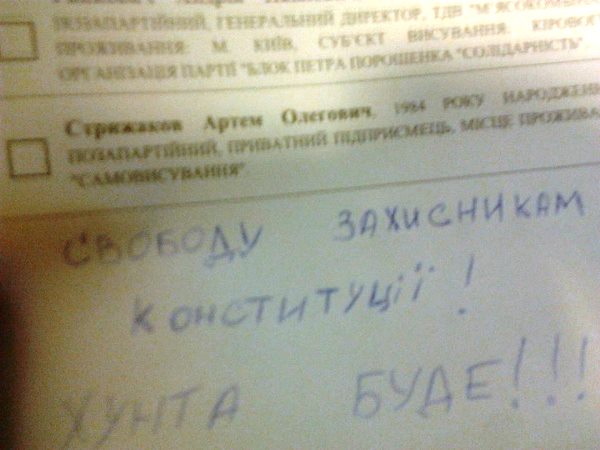 ПОЗАПАРТІЙНИЙ, ГЕНЕРАЛЬНИЙ ДИРЕКТОР, ТДВ "М'ЯСОКОМБІНАТ
ПРОЖИВАННЯ: М. КИЇВ, СУБ'ЄКТ ВИСУВАННЯ: КІРОВОГ
ОРГАНІЗАЦІЯ ПАРТІЇ "БЛОК ПЕТРА ПОРОШЕНКА "СОЛІДАРНІСТЬ"
Стрижаков Артем Олегович, 1984 РОКУ НАРОДЖЕННЯ
ПОЗАПАРТІЙНИЙ, ПРИВАТНИЙ ПІДПРИЄМЕЦЬ, МІСЦЕ ПРОЖИВА
"САМОВИСУВАННЯ"
СВОБОДУ ЗАХИСНИКАМ
КОНСТИТУЦІЇ!
ХУНТА БУДЕ!!!